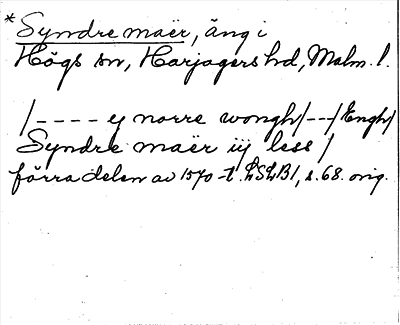 *Syndre maër, äng i
Högs sn, Harjagers hd, Malm. l.
/---- ey norre wongh/--/Engh/
Syndre maër iij less/
förra delen av 1570-t. LSLB1, s. 68. orig.